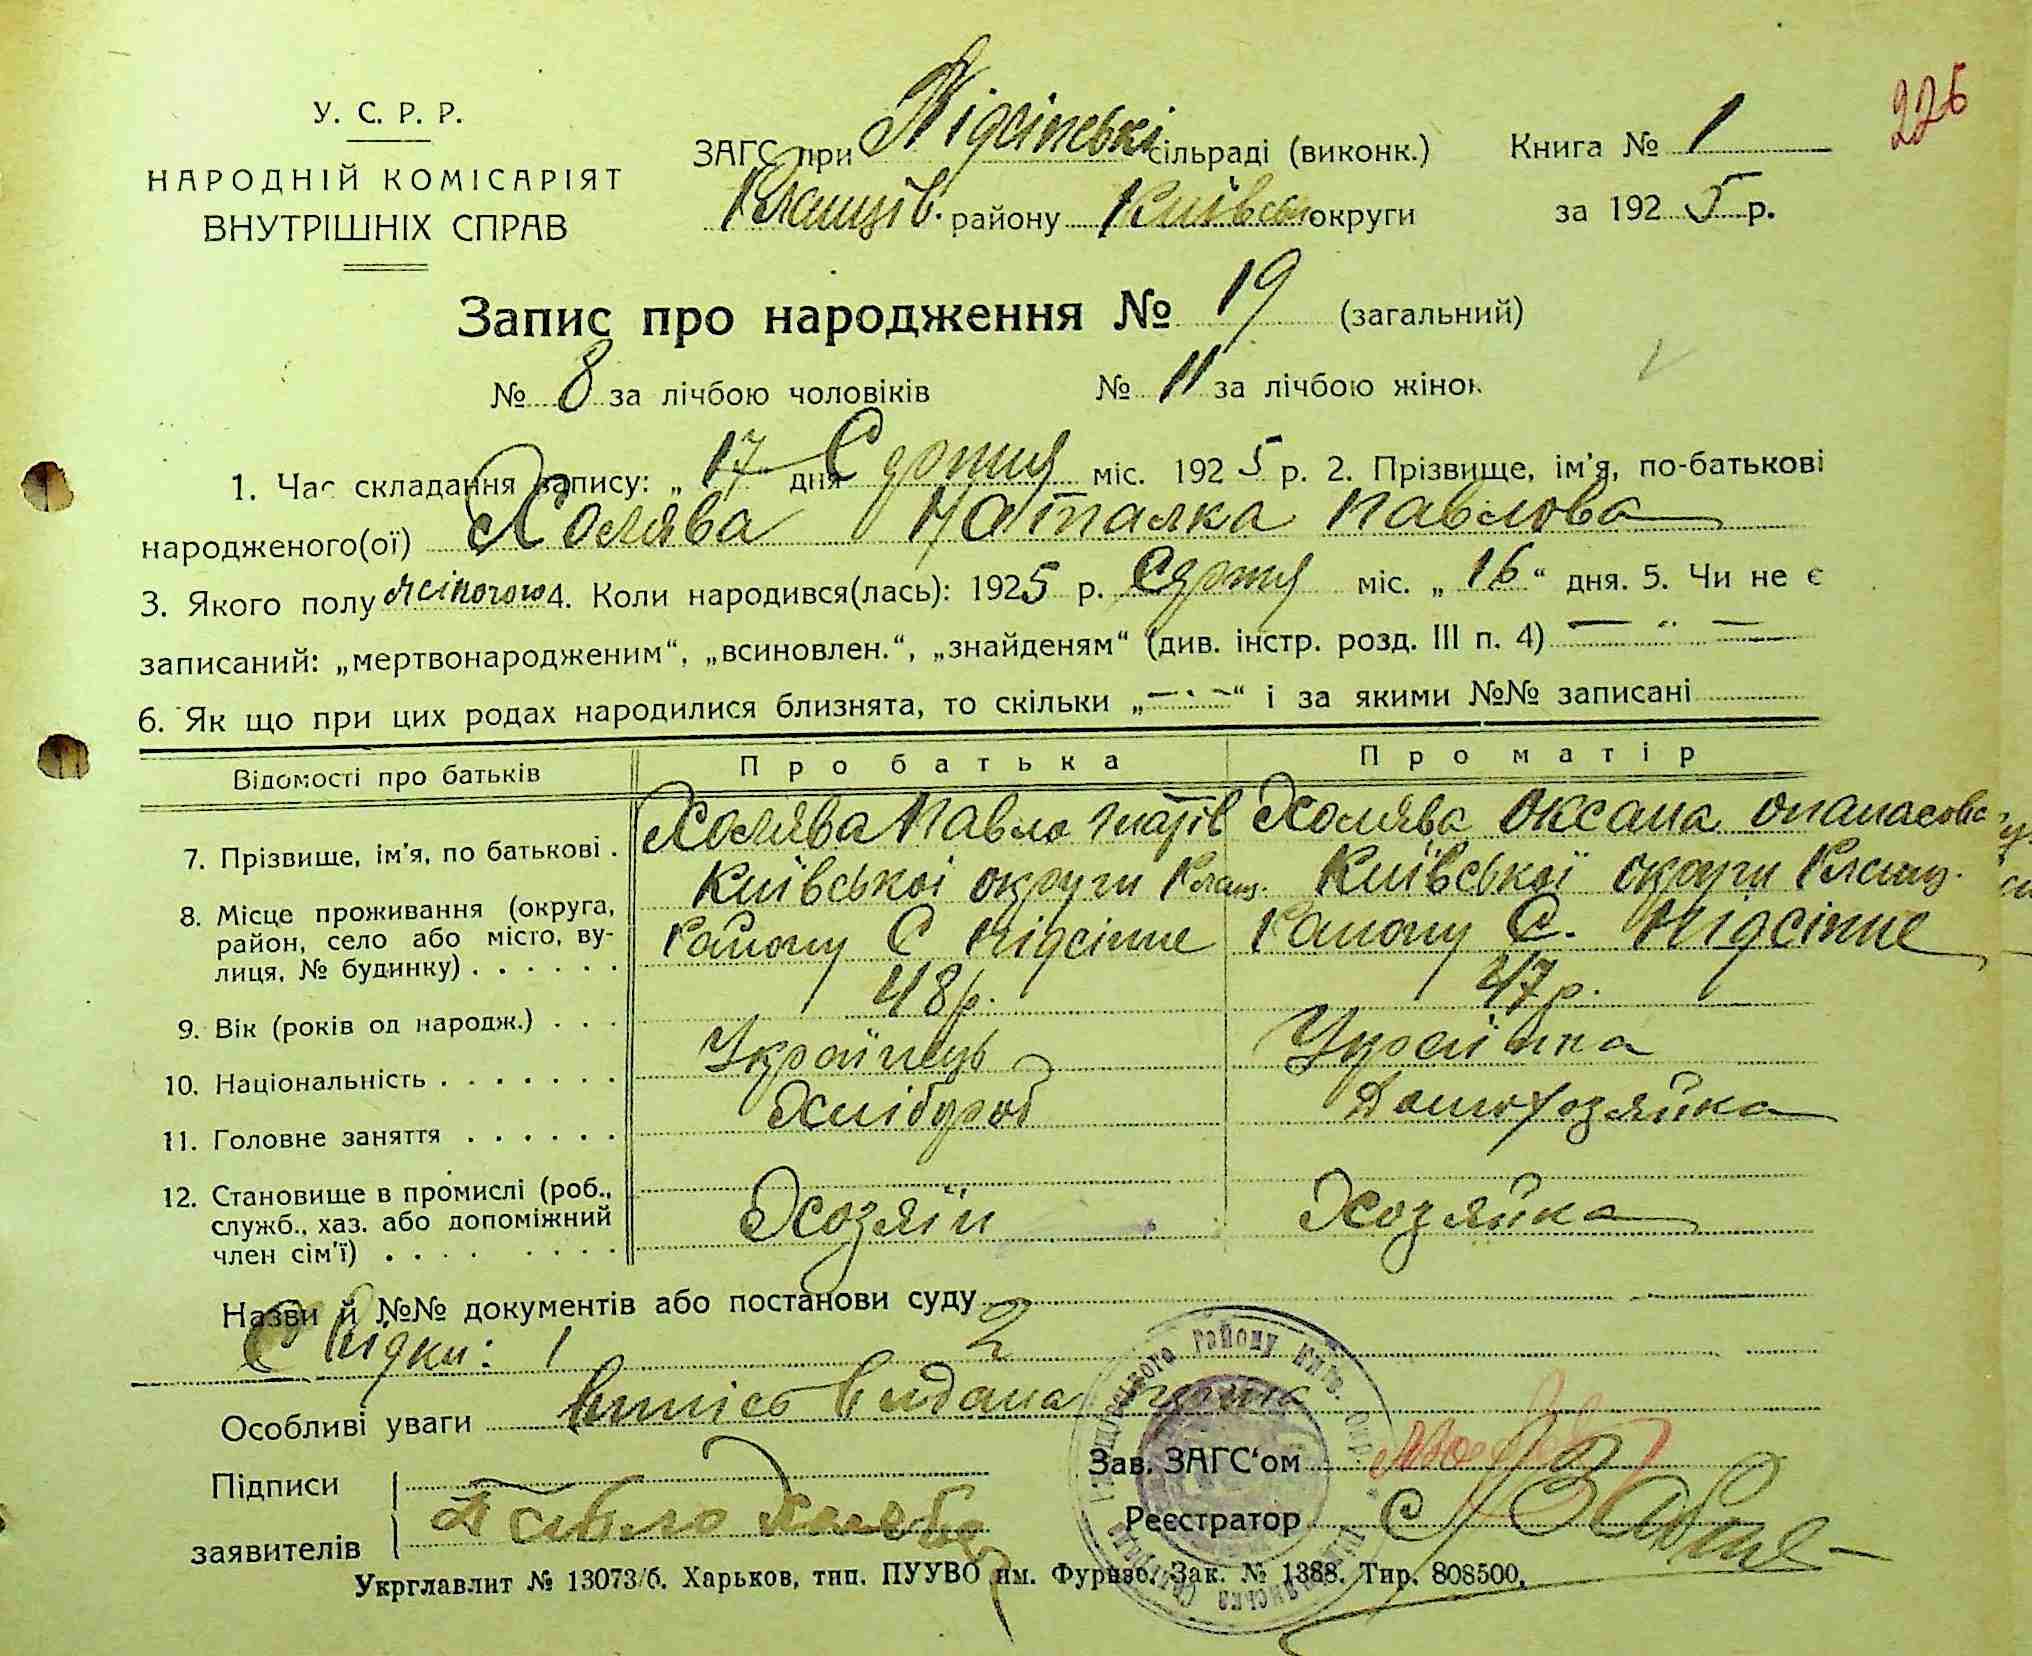 226
У. С. Р. Р.
НАРОДНІЙ КОМІСАРІЯТ
ВНУТРІШНІХ СПРАВ
ЗАГС при сільраді (виконк.)
району Київськ округи
Книга № 1
за 1925 р.
Запис про народження № 19 (загальний)
№ 8 за лічбою чоловіків № 11 за лічбою жінок
1. Час складання запису: „17 дня Серпня міс. 1925 р. 2. Прізвище, ім'я, по-батькові
народженого(ої) Холява Наталка Павлова
3. Якого полу жіночого 4. Коли народився(лась): 1925 р. Серпня міс. „16“ дня. 5. Чи не є
записаний: „мертвонародженим“, „всиновлен.“, „знайденям“ (див. інстр. розд. III п. 4) — „ —
6. Як що при цих родах народилися близнята, то скільки „— · —“ і за якими №№ записані
Відомості про батьків Про батька Про матір
7. Прізвище, ім'я, по батькові . Холява Павло Гнатів Холява Оксана Опанасова
8. Місце проживання (округа, Київської округи Київської округи
район, село або місто, ву- Району С. Району С.
лиця, № будинку) . . . . . .
9. Вік (років од народж.) . . . 48 р. 47 р.
10. Національність . . . . . . . Українець Українка
11. Головне заняття . . . . . . Хлібороб Домохозяйка
12. Становище в промислі (роб.,
служб., хаз. або допоміжний Хозяїн Хозяйка
член сім'ї) . . . . . . . .
Назви й №№ документів або постанови суду
Свідки: 1 2
Особливі уваги Випись видана
Підписи
заявителів Павло Холява
Зав. ЗАГС'ом
Реєстратор
Укрглавлит № 13073/б. Харьков, тип. ПУУВО им. Фрунзе. Зак. № 1388. Тир. 808500.